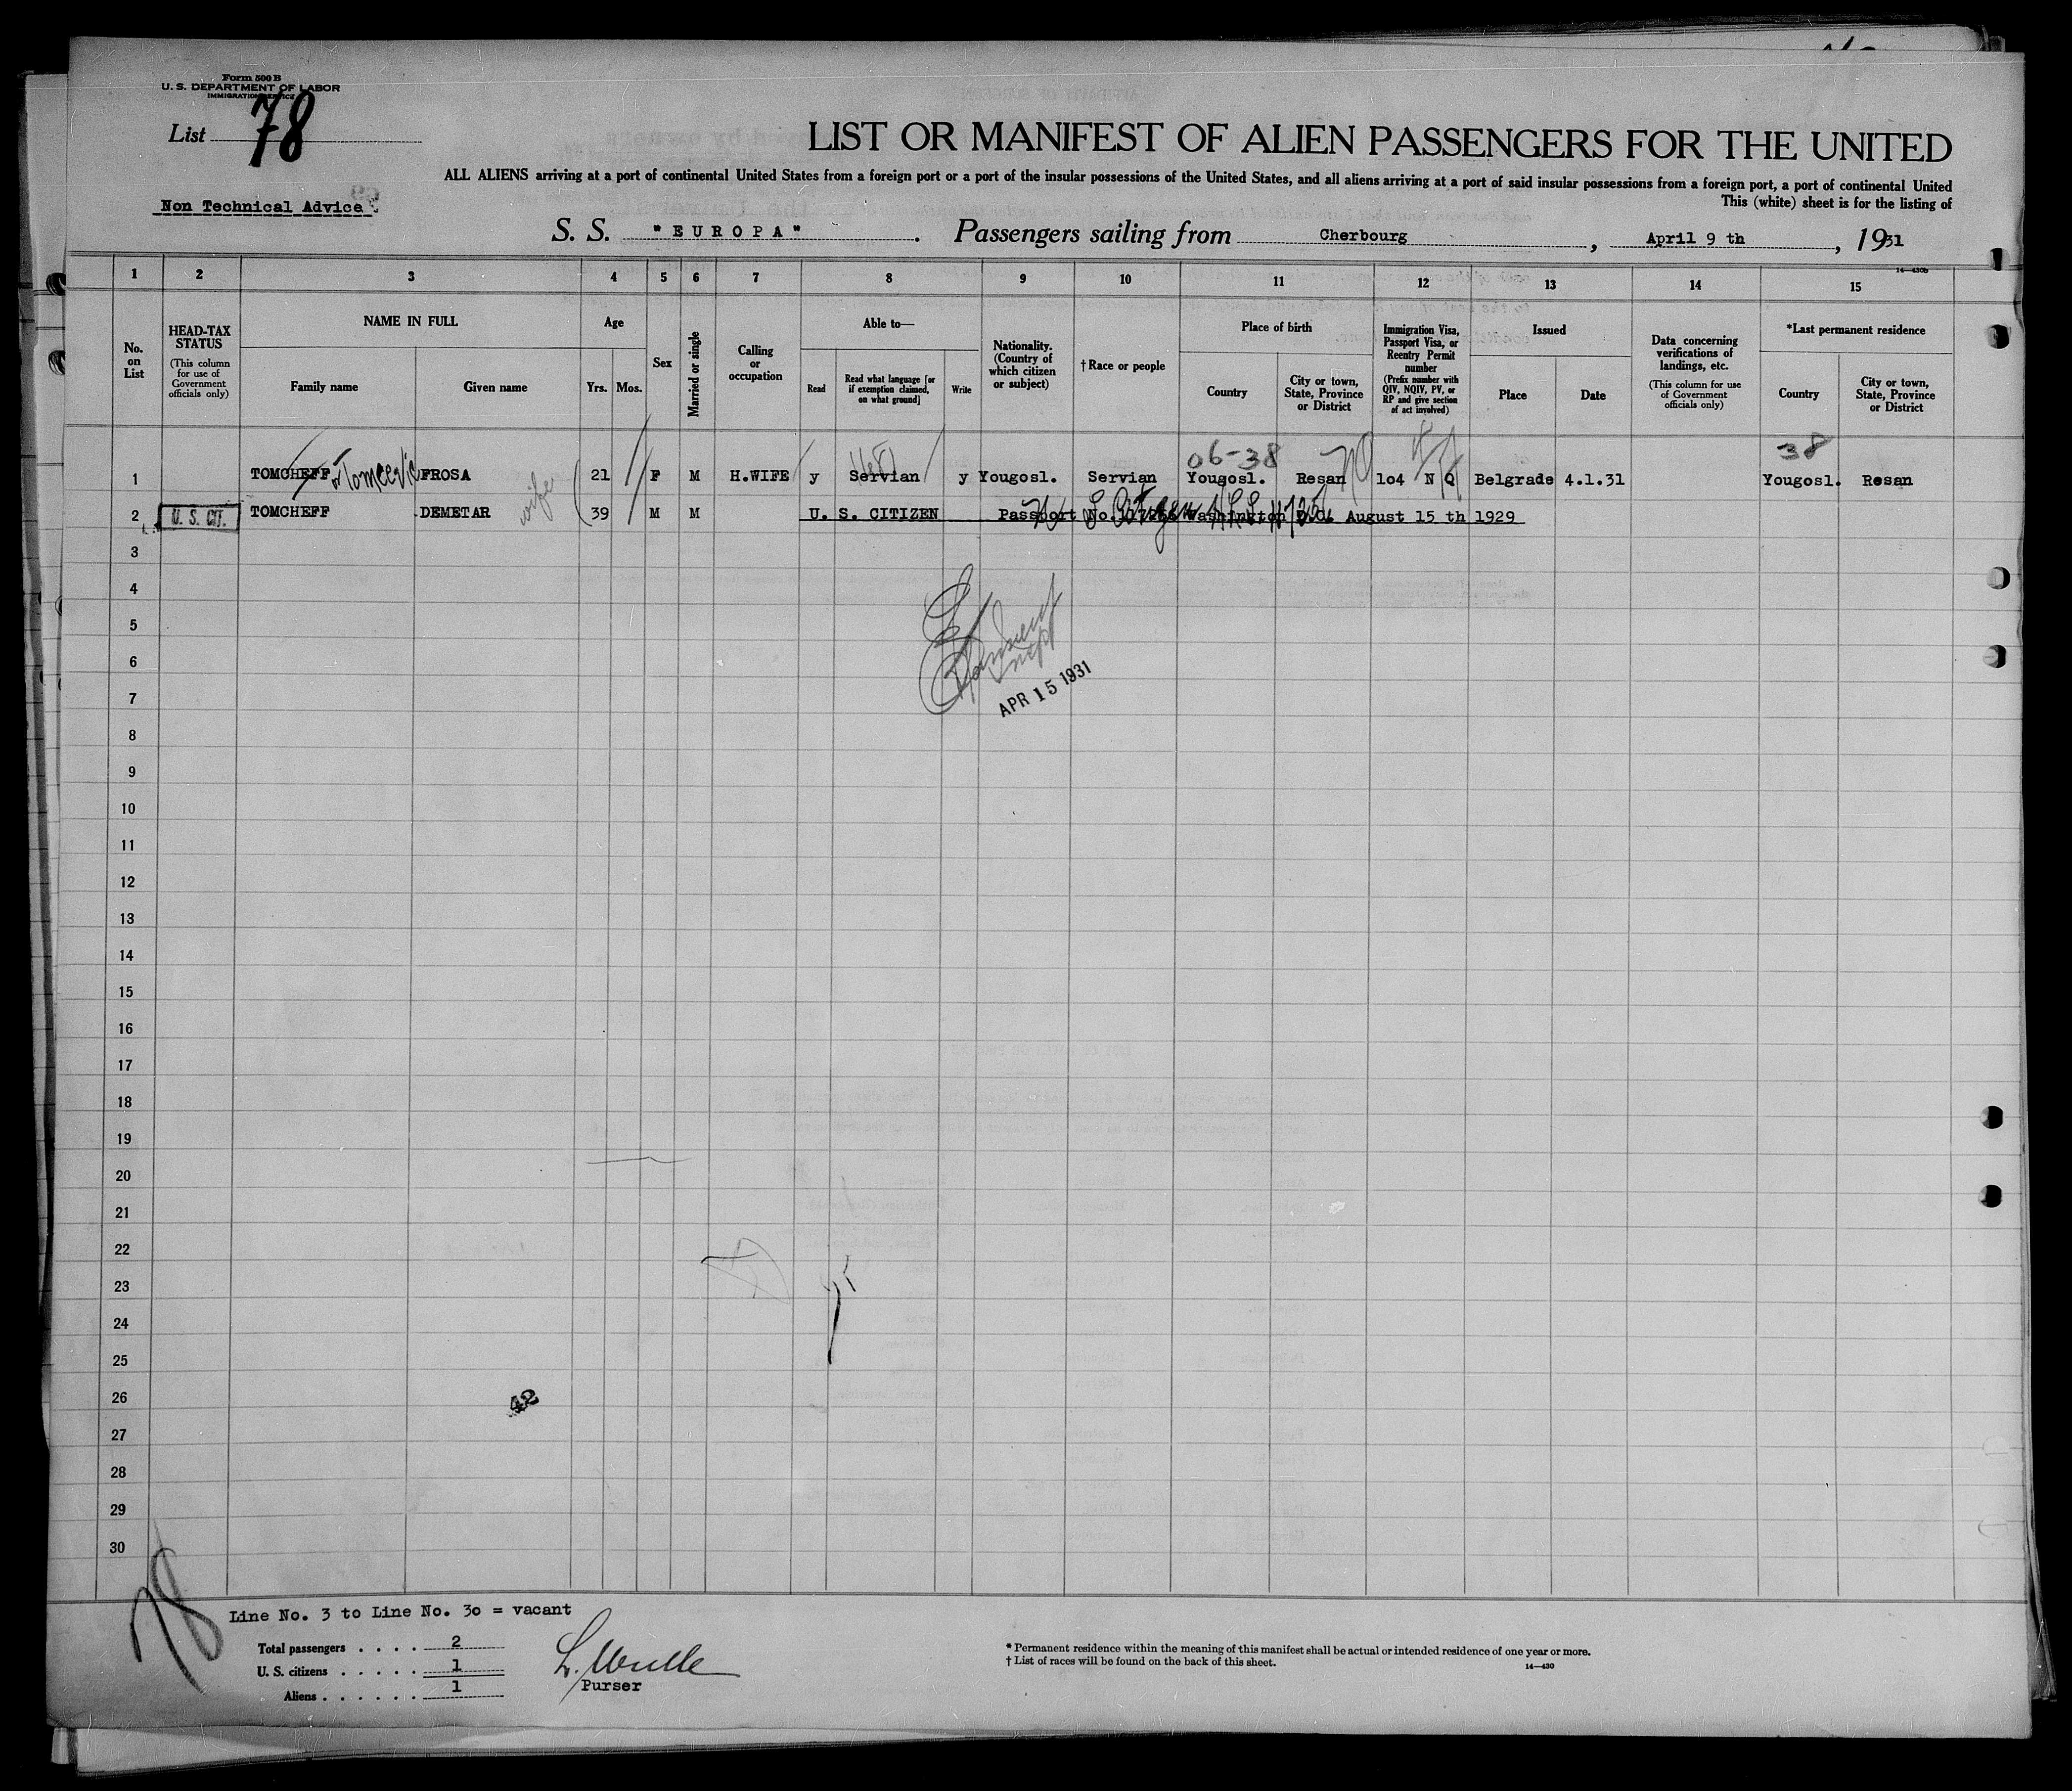 Form 500 B
U. S. DEPARTMENT OF LABOR
IMMIGRATION SERVICE
List 78
LIST OR MANIFEST OF ALIEN PASSENGERS FOR THE UNITED
ALL ALIENS arriving at a port of continental United States from a foreign port or a port of the insular possessions of the United States, and all aliens arriving at a port of said insular possessions from a foreign port, a port of continental United
Non Technical Advice
This (white) sheet is for the listing of
S. S. "EUROPA". Passengers sailing from Cherbourg, April 9 th, 1931
14—430b
1 2 3 4 5 6 7 8 9 10 11 12 13 14 15
No. on List
HEAD-TAX STATUS
(This column for use of Government officials only)
NAME IN FULL
Family name
Given name
Age
Yrs.
Mos.
Sex
Married or single
Calling or occupation
Able to—
Read
Read what language [or if exemption claimed, on what ground]
Write
Nationality. (Country of which citizen or subject)
† Race or people
Place of birth
Country
City or town, State, Province or District
Immigration Visa, Passport Visa, or Reentry Permit number
(Prefix number with QIV, NQIV, PV, or RP and give section of act involved)
Issued
Place
Date
Data concerning verifications of landings, etc.
(This column for use of Government officials only)
*Last permanent residence
Country
City or town, State, Province or District
06-38
38
1 TOMCHEFF or Tomcevic FROSA 21 F M H.WIFE y Servian y Yougosl. Servian Yougosl. Resan 1o4 N Q Belgrade 4.1.31 Yougosl. Resan
wife
2 U. S. CIT. TOMCHEFF DEMETAR 39 M M U. S. CITIZEN Passport No. Washington D.C. August 15 th 1929
3
4
5
6
APR 15 1931
7
8
9
10
11
12
13
14
15
16
17
18
19
20
21
22
23
24
25
26
42
27
28
29
30
78
Line No. 3 to Line No. 3o = vacant
Total passengers . . . . 2
U. S. citizens . . . . . 1
Aliens . . . . . . 1
Purser
* Permanent residence within the meaning of this manifest shall be actual or intended residence of one year or more.
† List of races will be found on the back of this sheet.
14—430